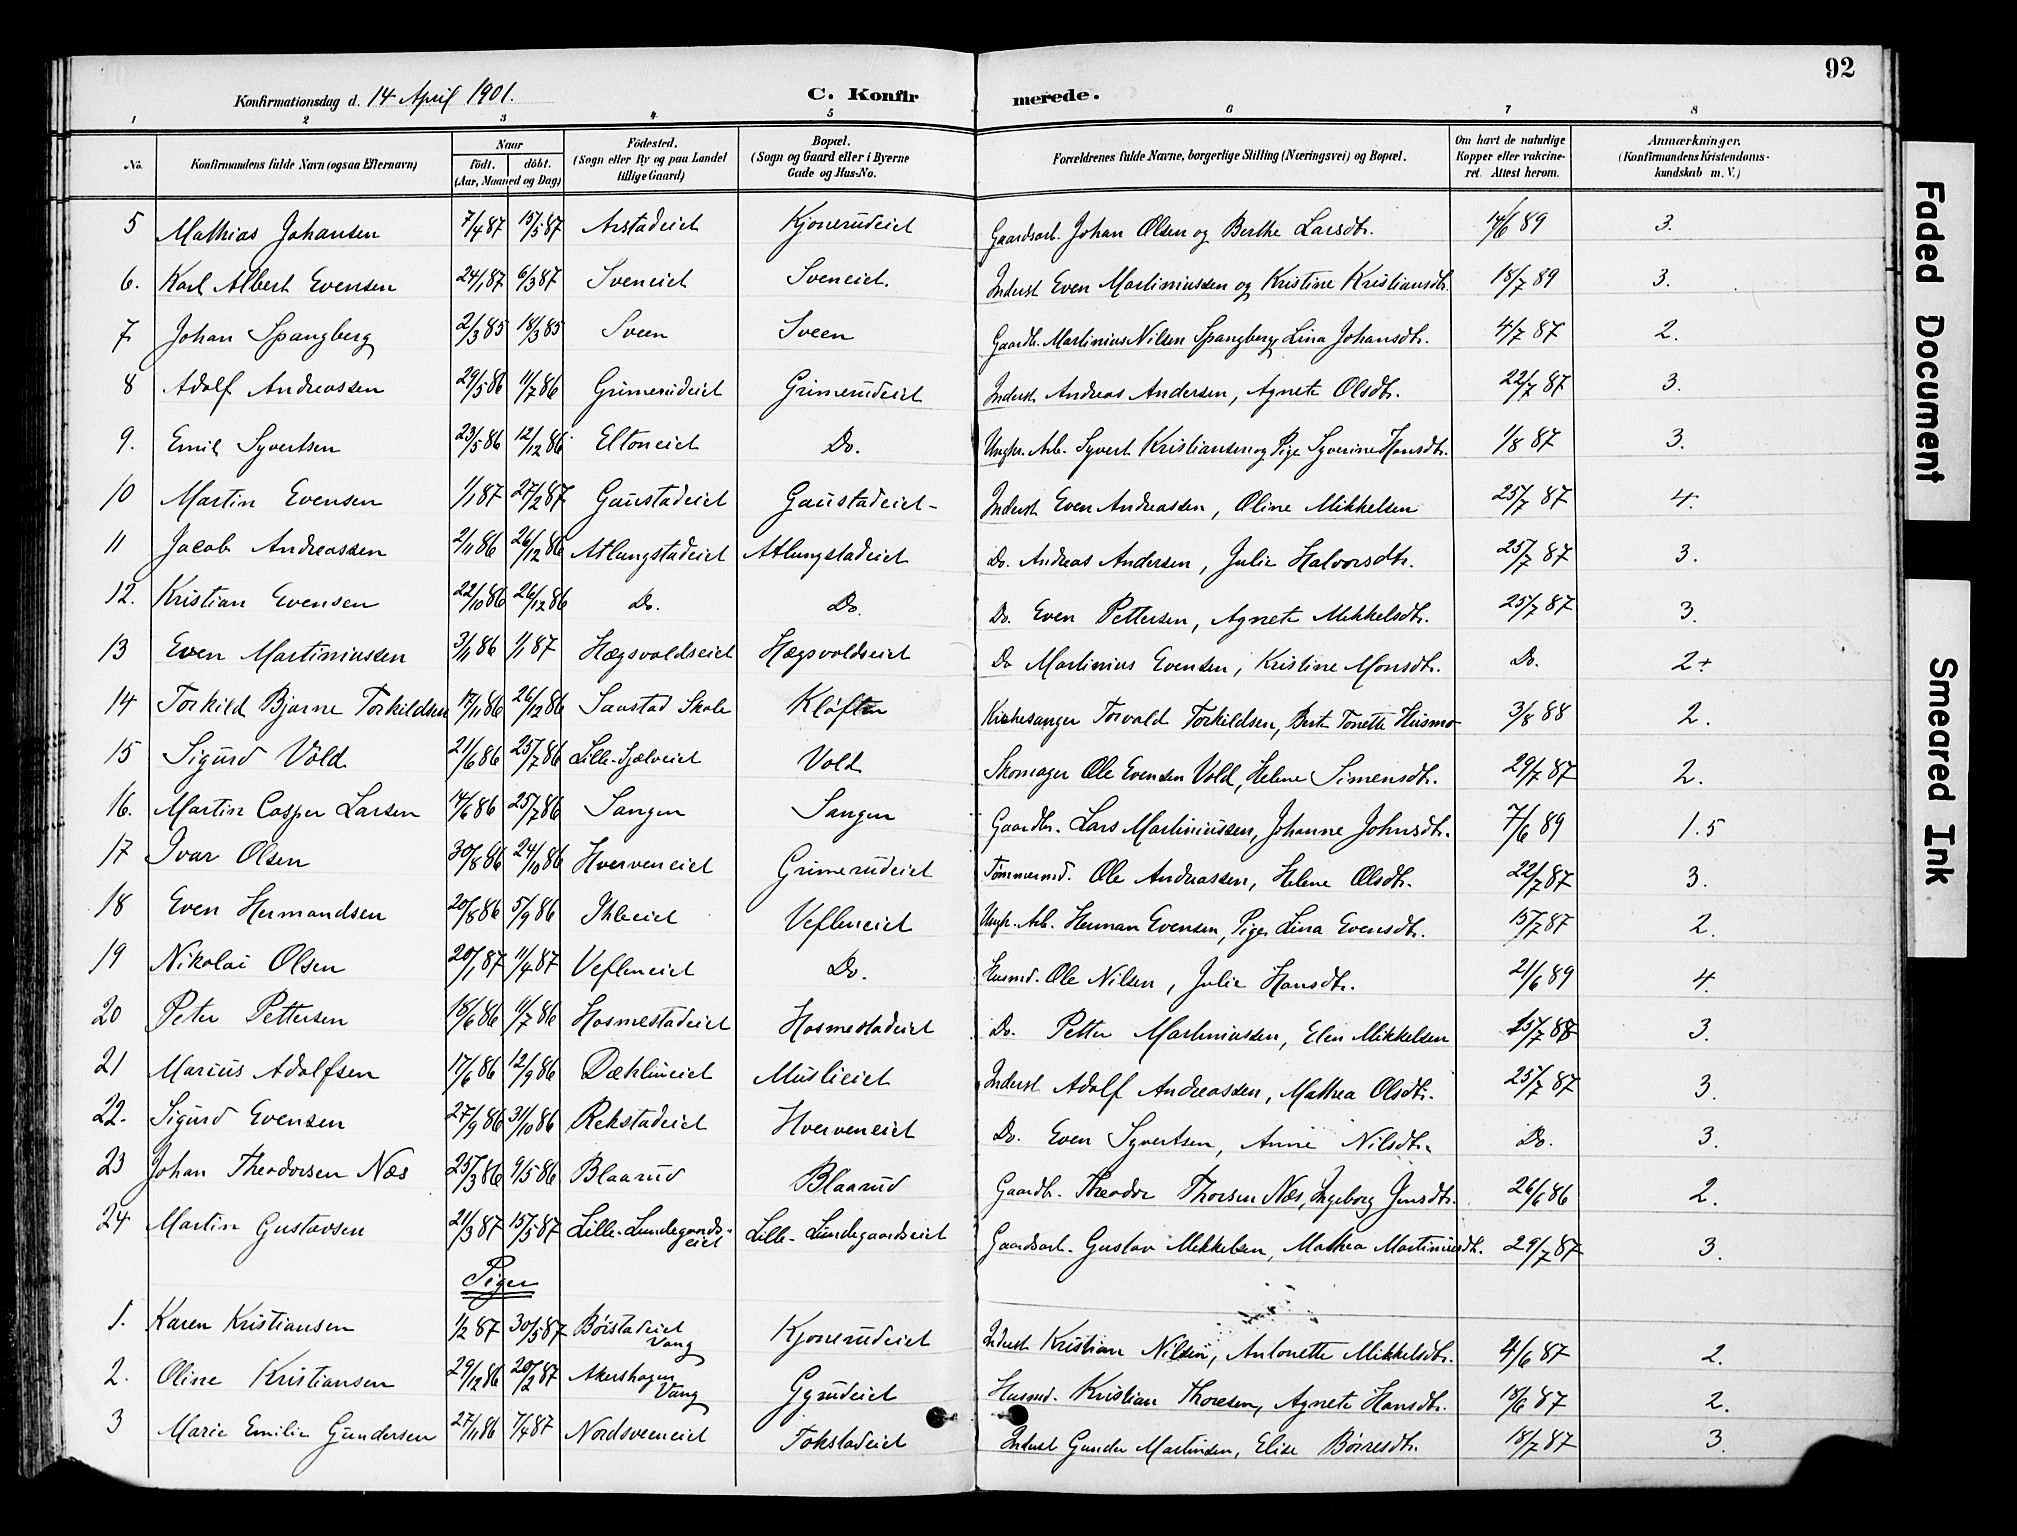 92
Konfirmationsdag d. 14 April 1901. C. Konfirmerede.
1 2 3 4 5 6 7 8
No. Konfirmandens fulde Navn (ogsaa Efternavn) Naar födt. döbt. (Aar, Maaned og Dag) Födested. (Sogn eller By og paa Landet tillige Gaard) Bopæl. (Sogn og Gaard eller i Byerne Gade og Hus-No. Forældrenes fulde Navne, borgerlige Stilling (Næringsvei) og Bopæl. Om havt de naturlige Kopper eller vakcineret. Attest herom. Anmærkninger. (Konfirmandens Kristendomskundskab m. V.)
5 Mathias Johansen 7/4 87 15/5 87 Arstadeiet Kjonerudeiet Gaardsarb. Johan Olsen og Berthe Larsdtr. 14/6 89 3.
6. Karl Albert Evensen 24/1 87 6/3 87 Sveneiet Sveneiet. Inderst Even Martiniussen og Kristine Kristiansdtr. 18/7 89 3.
7. Johan Spangberg 2/3 85 18/3 85 Sveen Sveen Gaardbr. Martinius Nilsen Spangberg, Lina Johansdtr. 4/7 87 2.
8 Adolf Andreassen 29/5 86 11/7 86 Grimerudeiet Grimerudeiet Inderst Andreas Andersen, Agnete Olsdtr. 22/7 87 3.
9. Emil Syvertsen 23/5 86 12/12 86 Eltoneiet Do. Ungkr. Arb. Syvert Kristiansen og Pige Syverine Hansdtr. 1/8 87 3.
10 Martin Evensen 1/1 87 27/2 87 Gaustadeiet Gaustadeiet- Inderst Even Andreassen, Oline Mikkelsen 25/7 87 4.
11 Jacob Andreassen 2/11 86 26/12 86 Atlungstadeiet Atlungstadeiet Do. Andreas Andersen, Julie Halvorsdtr. 25/7 87 3.
12. Kristian Evensen 22/10 86 26/12 86 Do. Do. Do. Even Pettersen, Agnete Mikkelsdtr. 25/7 87 3.
13 Even Martiniussen 3/11 86 1/1 87 Hægsvoldseiet Hægsvoldseiet Do Martinius Evensen, Kristine Monsdtr. Do. 2+
14 Torkild Bjarne Torkildsen 17/11 86 26/12 86 Saustad Skole Kløften Kirkesanger Torvald Torkildsen, Berte Tonette Husmo 3/8 88 2.
15 Sigurd Vold 21/6 86 25/7 86 Lille-Sjælveiet Vold Skomager Ole Evensen Vold, Helene Simensdtr. 29/7 87 2.
16. Martin Casper Larsen 14/6 86 25/7 86 Sangen Sangen Gaardbr. Lars Martiniussen, Johanne Johnsdtr. 7/6 89 1.5
17 Ivar Olsen 30/8 86 24/10 86 Hverveneiet Grimerudeiet Tömmermd. Ole Andreassen, Helene Olsdtr. 22/7 87 3.
18 Even Hermandsen 20/8 86 5/9 86 Ihleeiet Vefleneiet Ungkr. Arb. Herman Evensen, Pige Lina Evensdtr. 15/7 87 2.
19 Nikolai Olsen 20/1 87 11/4 87 Vefleneiet Do. Husmd. Ole Nilsen, Julie Hansdtr. 21/6 89 4.
20 Peter Pettersen 18/6 86 11/7 86 Hosmestadeiet Hosmestadeiet Do. Petter Martiniussen, Elen Mikkelsen 15/7 88 3.
21 Marius Adolfsen 17/6 86 12/9 86 Dæhlineiet Muslieiet Inderst Adolf Andreassen, Mathea Olsdtr. 25/7 87 3.
22. Sigurd Evensen 27/9 86 31/10 86 Rekstadeiet Hverveneiet Do. Even Syvertsen, Anne Nilsdtr. Do. 3.
23 Johan Theodorsen Næs 25/3 86 9/5 86 Blaarud Blaarud Gaardbr. Theodor Thorsen Næs, Ingeborg Jensdtr. 26/6 86 2.
24 Martin Gustavsen 21/3 87 15/5 87 Lille-Lundegaardseiet Lille-Lundegaardseiet Gaardsarb. Gustav Mikkelsen, Mathea Martiniusdtr. 29/7 87 3.
Piger
1. Karen Kristiansen 1/2 87 30/5 87 Börstadeiet Vang Kjonerudeiet Inderst Kristian Nilsen, Antonette Mikkelsdtr. 4/6 87 2.
2. Oline Kristiansen 29/12 86 20/2 87 Akershagen Vang Gyrudeiet Husmd. Kristian Thoresen, Agnete Hansdtr. 18/6 87 2.
3 Marie Emilie Gundersen 27/1 86 7/4 87 Nordsveeneiet Tokstadeiet Inderst Gunder Martinsen, Elise Börresdtr. 18/7 87 3.
Faded Document
Smeared Ink